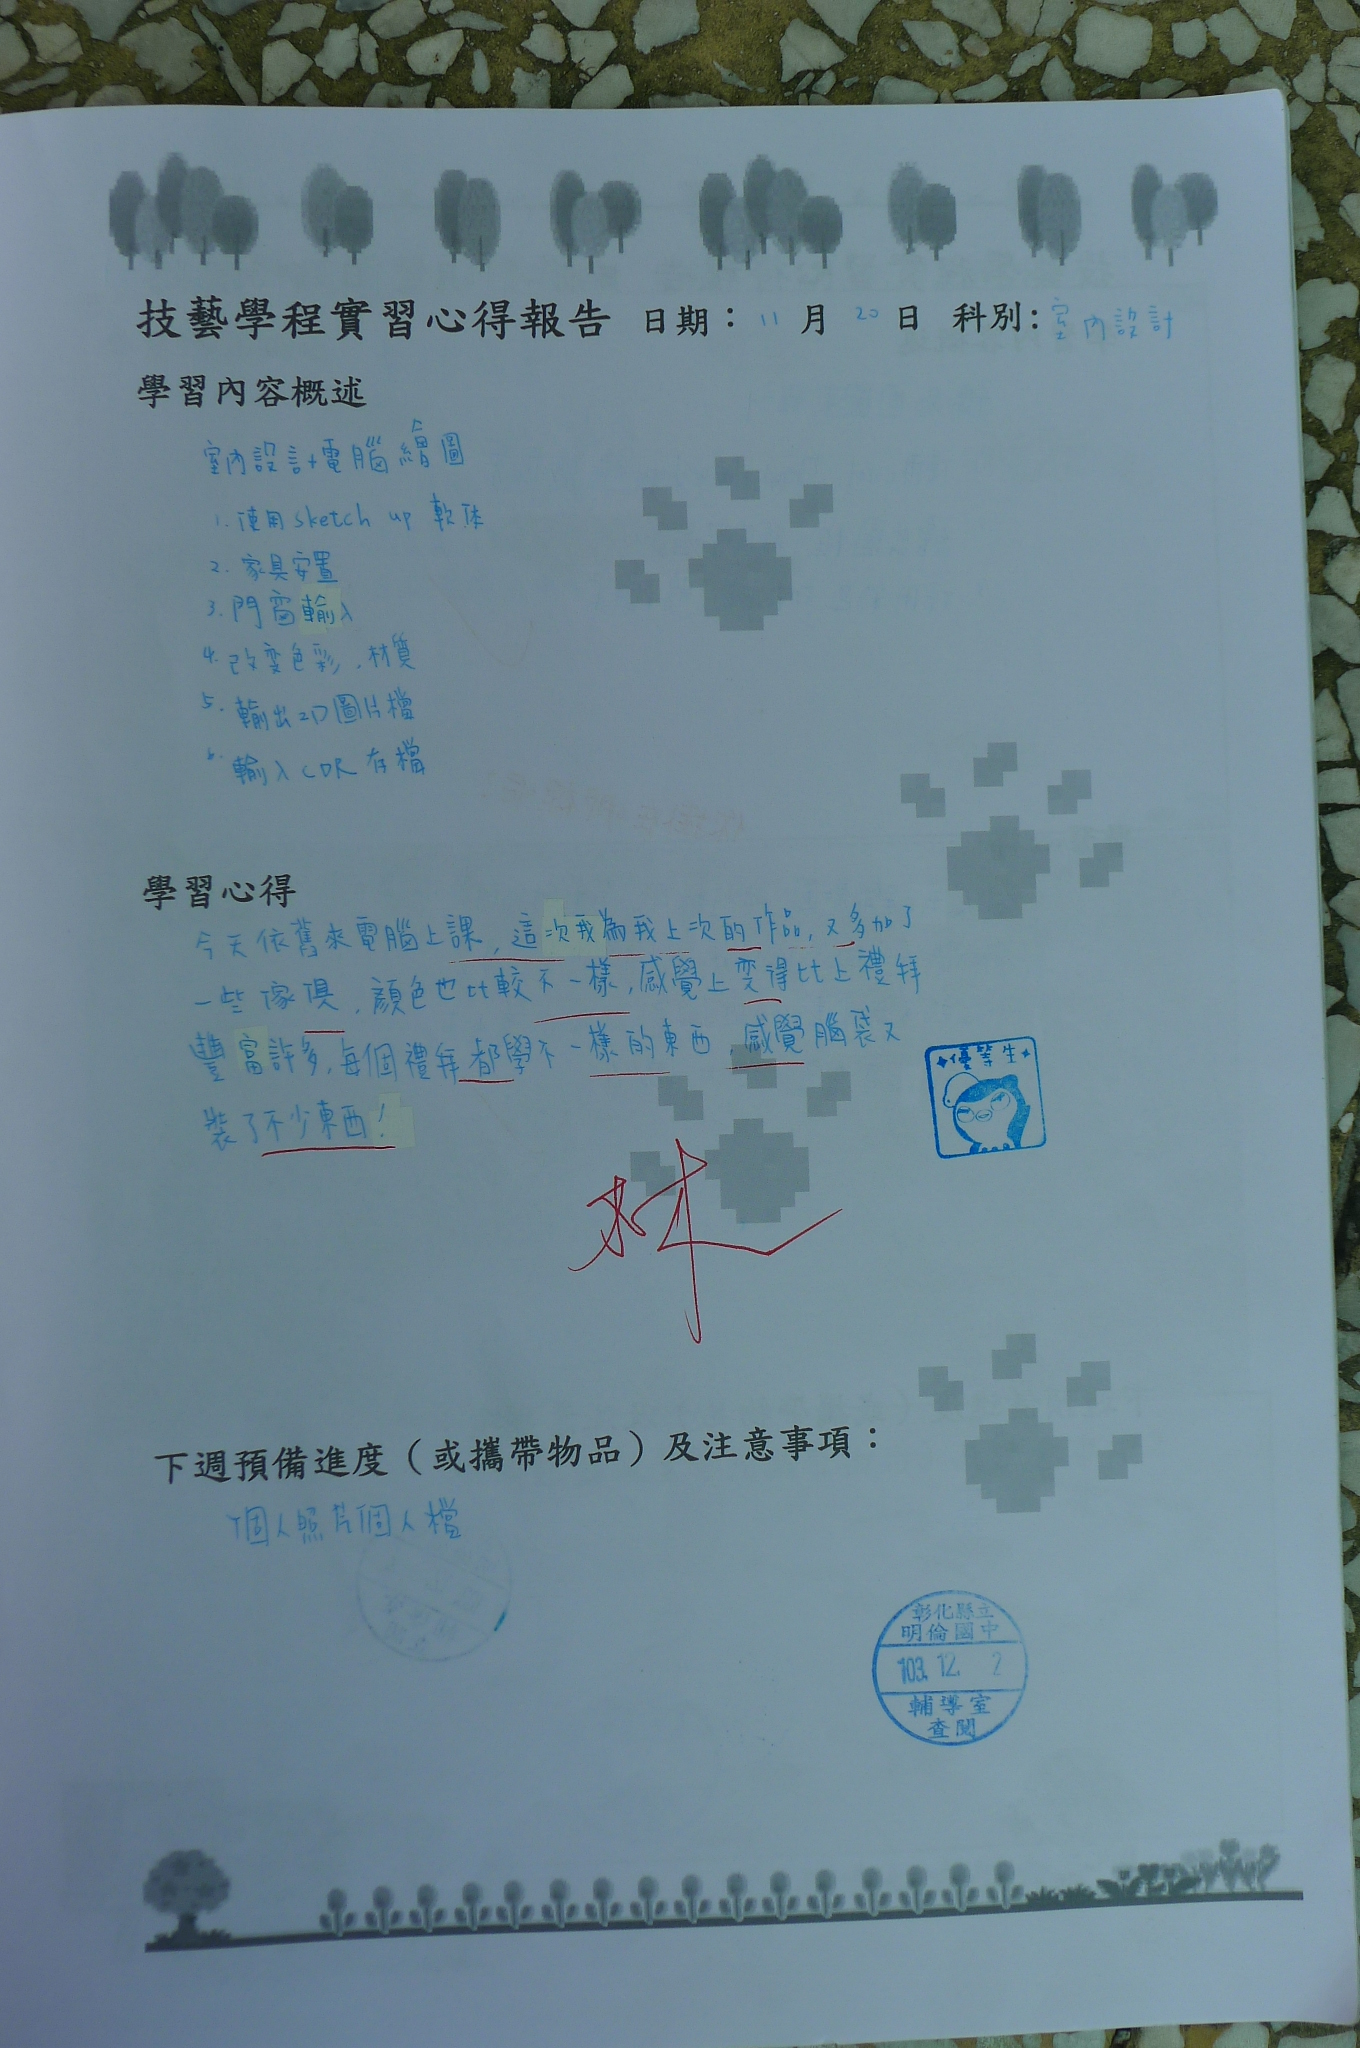 技藝學程實習心得報告 日期：11月20日 科別：室內設計
學習內容概述
室內設計+電腦繪圖
1. 使用 sketch up 軟体
2. 家具安置
3. 門窗輸入
4. 改变色彩、材質
5. 輸出2D圖片檔
6. 輸入CDR存檔
學習心得
今天依舊來電腦上課，這次我為我上次的作品，又多加了
一些傢俱，顏色也比較不一樣，感覺上变得比上禮拜
豐富許多，每個禮拜都學不一樣的東西，感覺腦袋又
裝了不少東西！
優等生
林
下週預備進度（或攜帶物品）及注意事項：
個人照片個人檔
彰化縣立
明倫國中
103.12. 2
輔導室
查閱